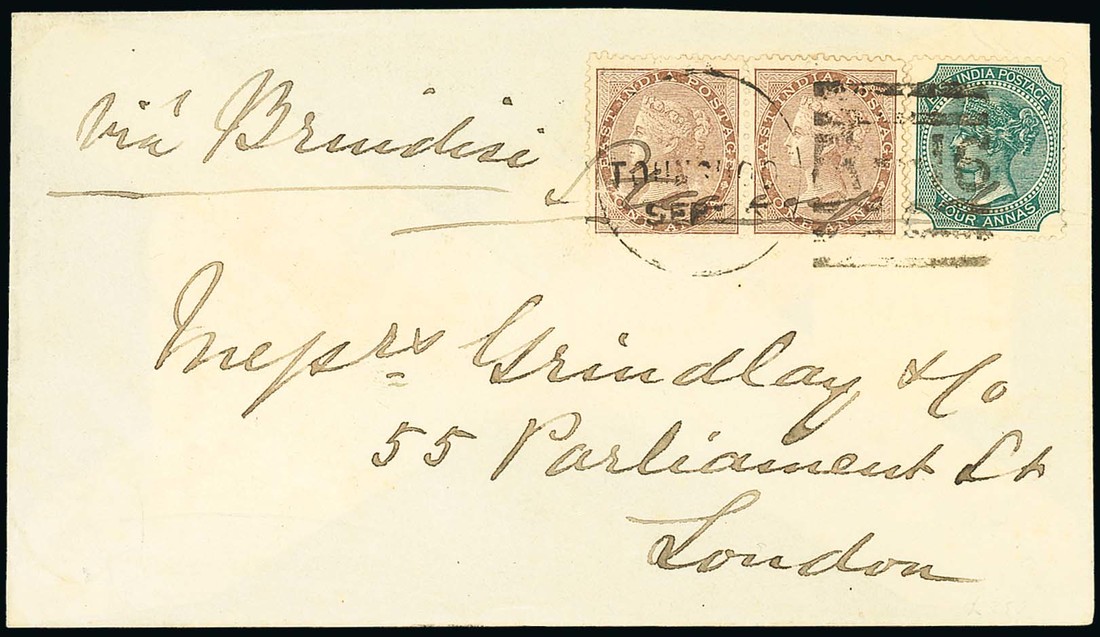 viâ Brindisi
EAST INDIA POSTAGE
ONE ANNA
EAST INDIA POSTAGE
ONE ANNA
INDIA POSTAGE
FOUR ANNAS
SEP
Messrs Grindlay & Co
55 Parliament St
London